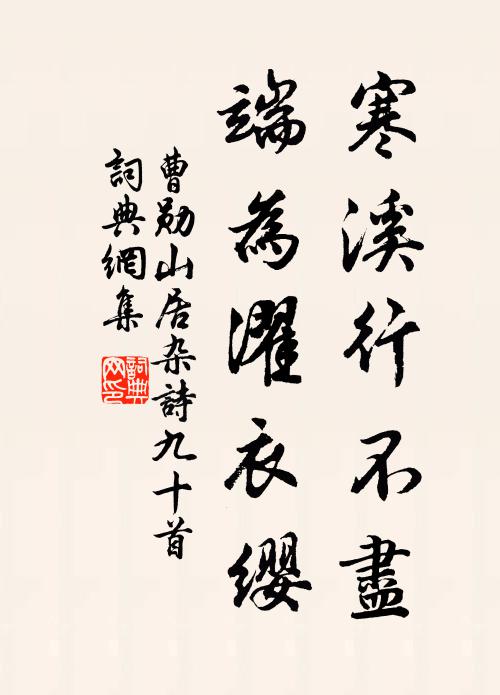 寒溪行不盡
端為濯衣纓
曹勛山居杂詩九十首
詞典網集
詞典網印